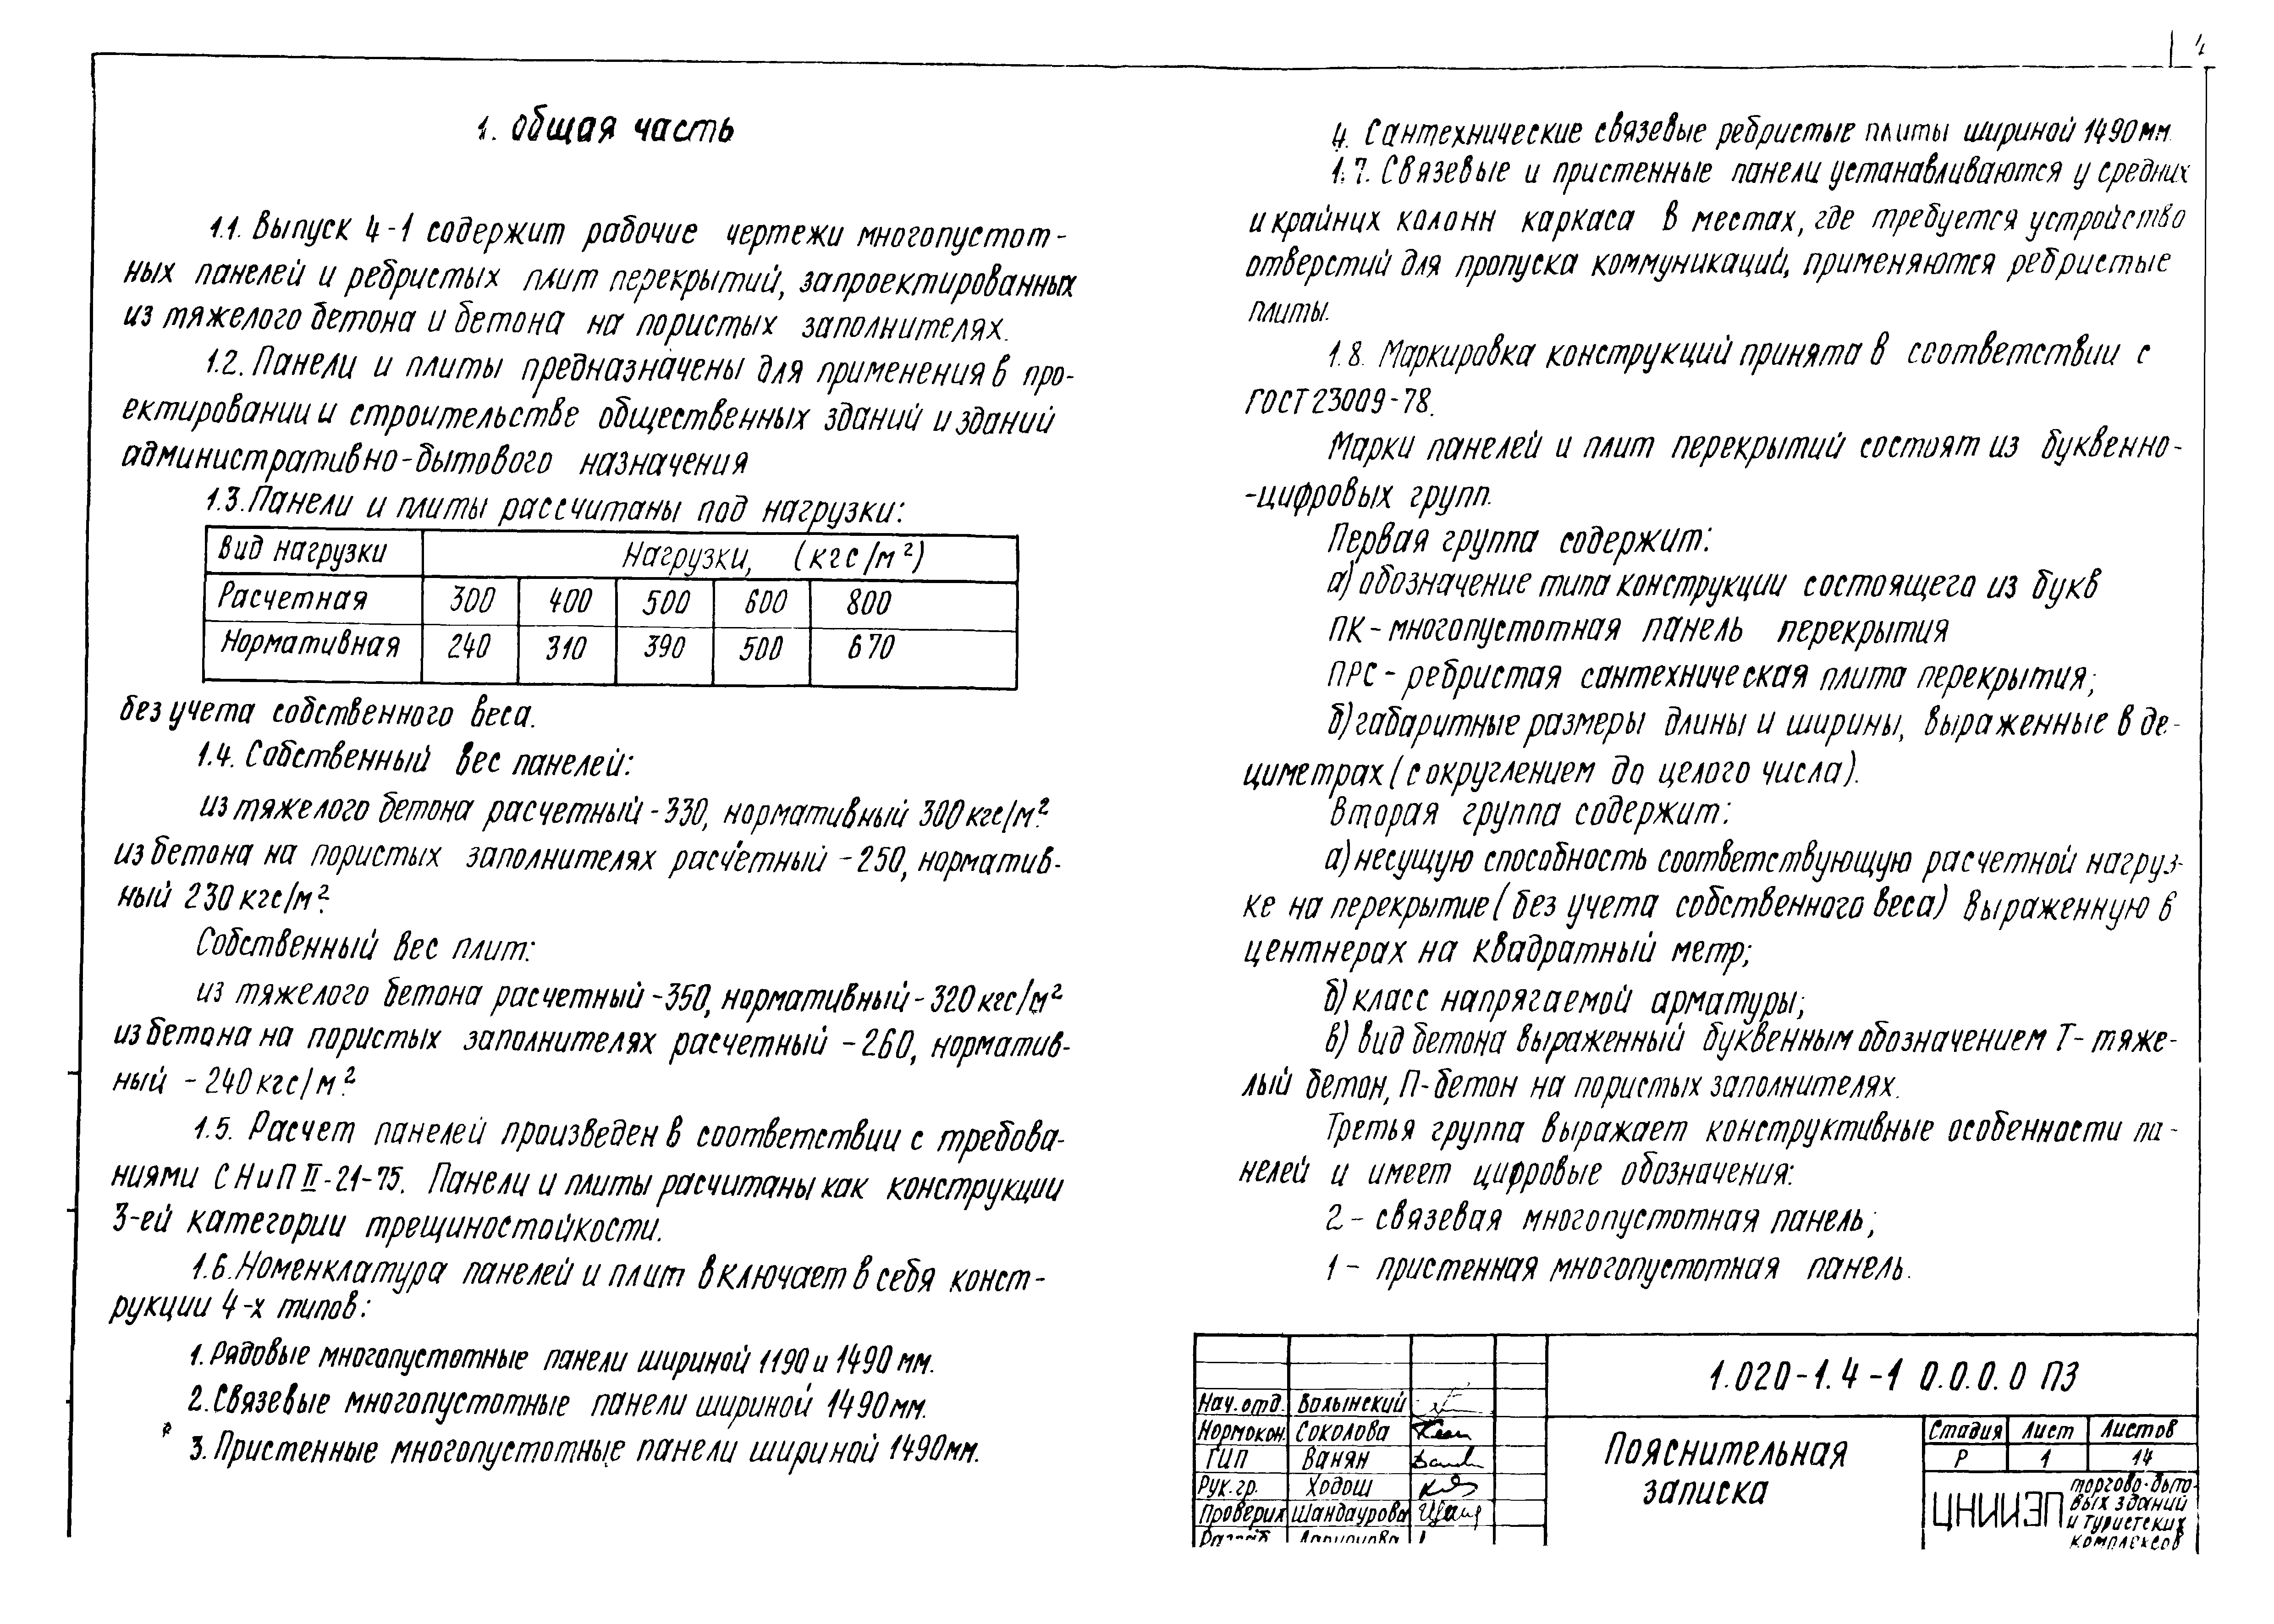 1. Общая часть
1.1. Выпуск 4-1 содержит рабочие чертежи многопустот-
ных панелей и ребристых плит перекрытий, запроектированных
из тяжелого бетона и бетона на пористых заполнителях.
1.2. Панели и плиты предназначены для применения в про-
ектировании и строительстве общественных зданий и зданий
административно-бытового назначения
1.3. Панели и плиты рассчитаны под нагрузки:
Вид нагрузки Нагрузки, (кгс/м²)
Расчетная 300 400 500 600 800
Нормативная 240 310 390 500 670
без учета собственного веса.
1.4. Собственный вес панелей:
из тяжелого бетона расчетный - 330, нормативный 300 кгс/м².
из бетона на пористых заполнителях расчетный - 250, норматив-
ный 230 кгс/м².
Собственный вес плит:
из тяжелого бетона расчетный - 350, нормативный - 320 кгс/м²
из бетона на пористых заполнителях расчетный - 260, норматив-
ный - 240 кгс/м².
1.5. Расчет панелей произведен в соответствии с требова-
ниями СНиП II-21-75. Панели и плиты расчитаны как конструкции
3-ей категории трещиностойкости.
1.6. Номенклатура панелей и плит включает в себя конст-
рукции 4-х типов:
1. Рядовые многопустотные панели шириной 1190 и 1490 мм.
2. Связевые многопустотные панели шириной 1490 мм.
3. Пристенные многопустотные панели шириной 1490 мм.
4. Сантехнические связевые ребристые плиты шириной 1490 мм.
1.7. Связевые и пристенные панели устанавливаются у средних
и крайних колонн каркаса в местах, где требуется устройство
отверстий для пропуска коммуникаций, применяются ребристые
плиты.
1.8. Маркировка конструкций принята в соответствии с
ГОСТ 23009-78.
Марки панелей и плит перекрытий состоят из буквенно-
-цифровых групп.
Первая группа содержит:
а) обозначение типа конструкции состоящего из букв
ПК - многопустотная панель перекрытия
ПРС - ребристая сантехническая плита перекрытия;
б) габаритные размеры длины и ширины, выраженные в де-
циметрах (с округлением до целого числа).
Вторая группа содержит:
а) несущую способность соответствующую расчетной нагруз-
ке на перекрытие (без учета собственного веса) выраженную в
центнерах на квадратный метр;
б) класс напрягаемой арматуры;
в) вид бетона выраженный буквенным обозначением Т - тяже-
лый бетон, П - бетон на пористых заполнителях.
Третья группа выражает конструктивные особенности па-
нелей и имеет цифровые обозначения:
2 - связевая многопустотная панель;
1 - пристенная многопустотная панель.
1.020-1.4-1 0.0.0.0 ПЗ
Нач. отд. Волынский
Нормокон. Соколова
ГИП Ванян
Рук. гр. Ходош
Проверил Шандаурова
Пояснительная
записка
Стадия Лист Листов
Р 1 14
ЦНИИЭП торгово-быто-
вых зданий
и туристских
комплексов